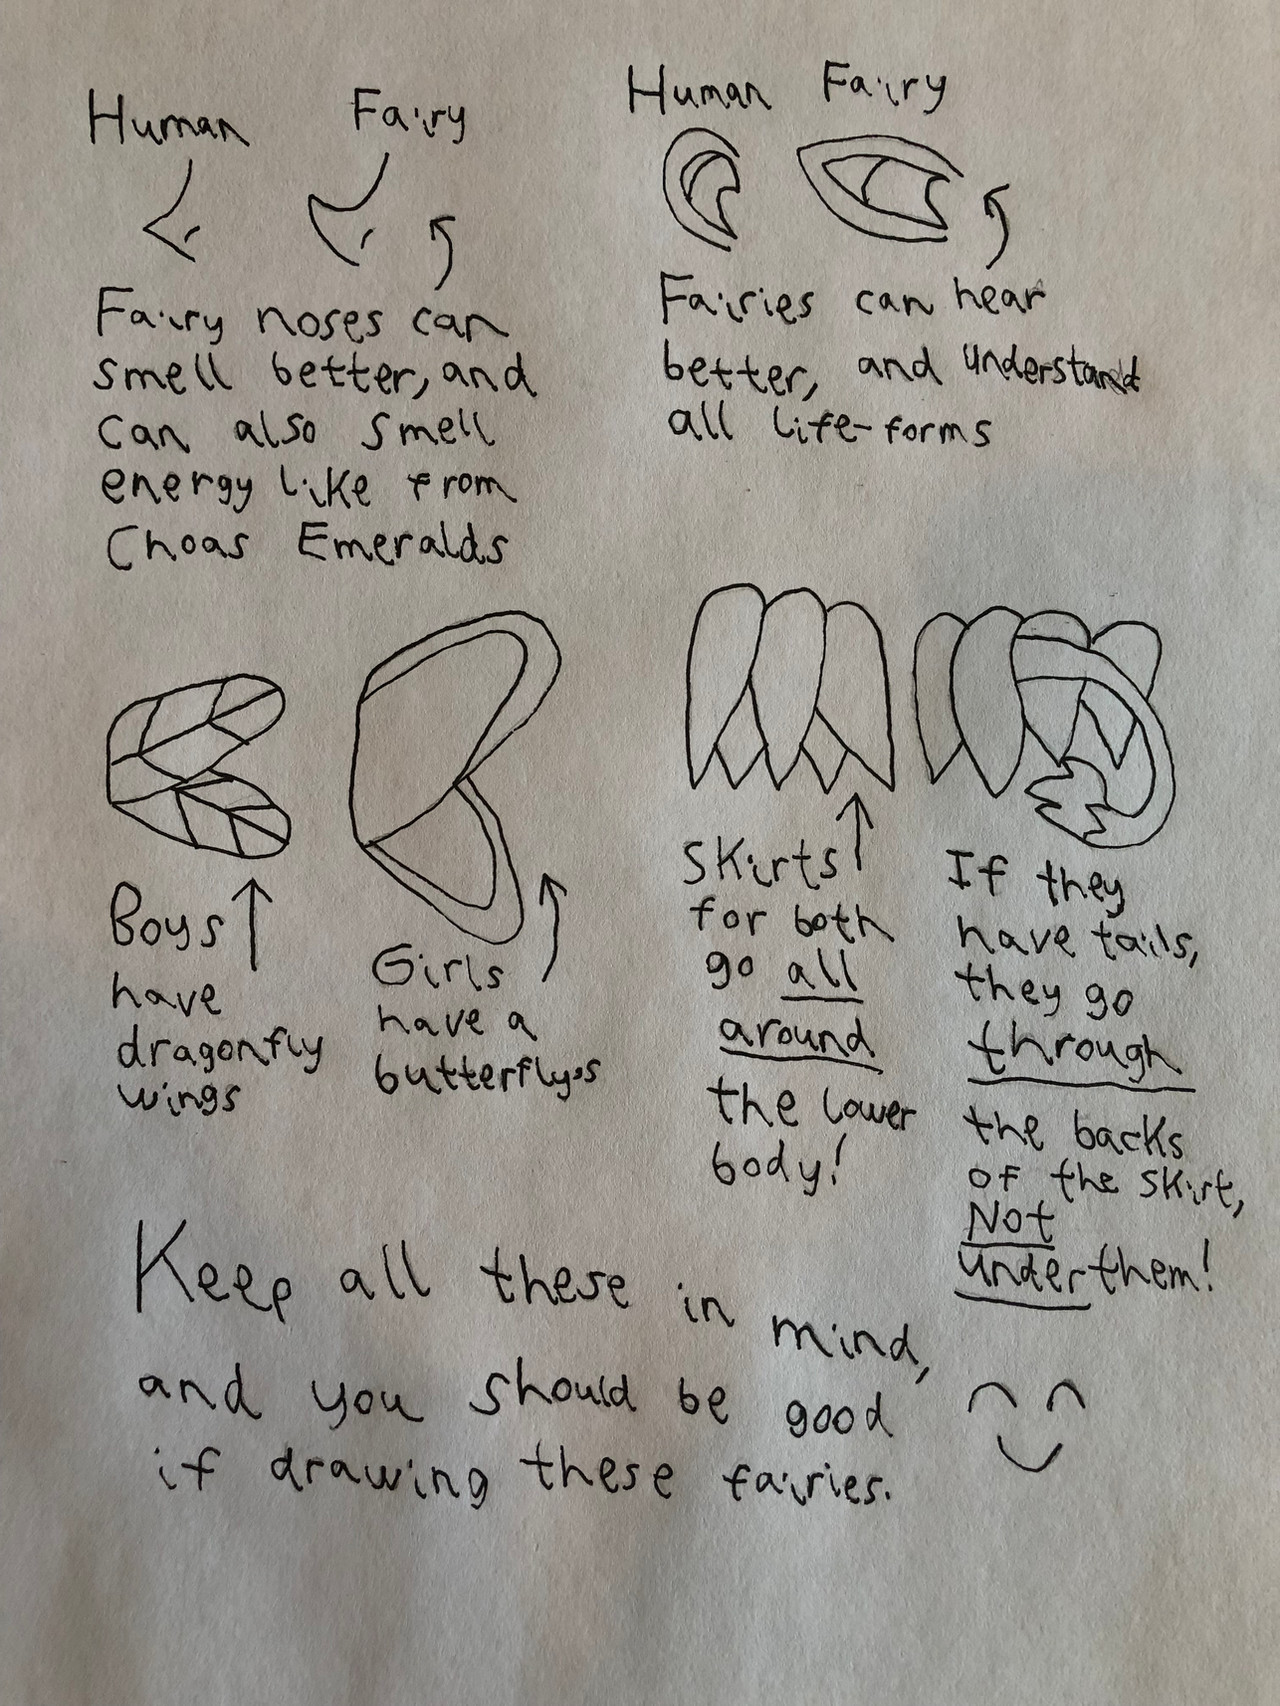 Human Fairy
Fairy noses can
smell better, and
can also smell
energy like from
Choas Emeralds
Human Fairy
Fairies can hear
better, and understand
all life-forms
Boys
have
dragonfly
wings
Girls
have a
butterfly's
Skirts
for both
go all
around
the lower
body!
If they
have tails,
they go
through
the backs
of the skirt,
Not
under them!
Keep all these in mind,
and you should be good
if drawing these fairies.